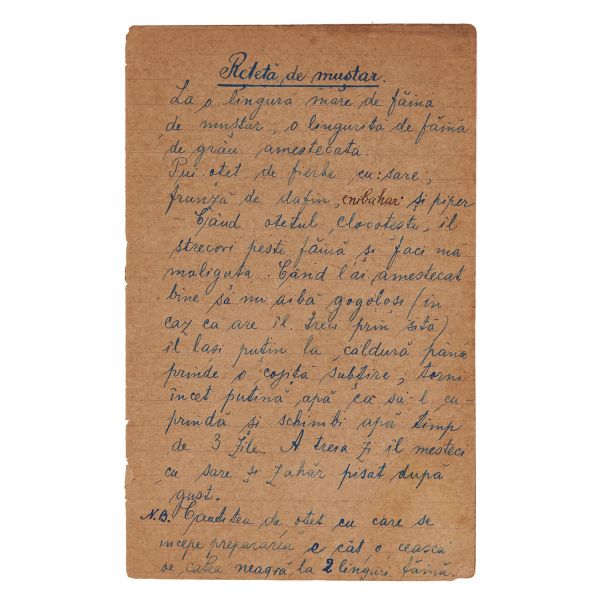 Rețetă de muștar.
La o lingură mare de făină
de muștar, o linguriță de făină
de grâu amestecata.
Pui otet de fierbe cu: sare,
frunză de dafin, enibahar și piper
– Când otetul clocotește, il
strecori peste făină și faci mă
maliguta. Când l'ai amestecat
bine să nu aibă gogolosi (in
caz ca are il treci prin sită)
il lasi puțin la căldură până
prinde o cojită subtire; torni
încet puțină apă ca să-l cu-
prindă și schimbi apă timp
de 3 zile. A treia zi il mesteci
cu sare și zahăr pisat după
gust.
N.B. Cantitea de otet cu care se
incepe prepararea e cât o ceasca
de cafea neagră, la 2 linguri făină.